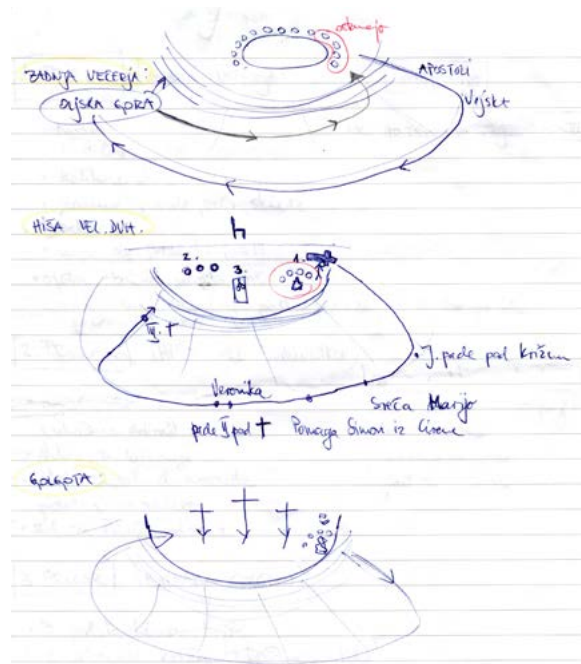 odmejo
ZADNJA VEČERJA:
APOSTOLI
OLJSKA GORA
Vojska
HIŠA VEL. DUH.
2.
1.
3.
III. †
J. pade pod križem
Veronika
Sreča Marijo
pade II pod †
Pomaga Simon iz Cirene
GOLGOTA: